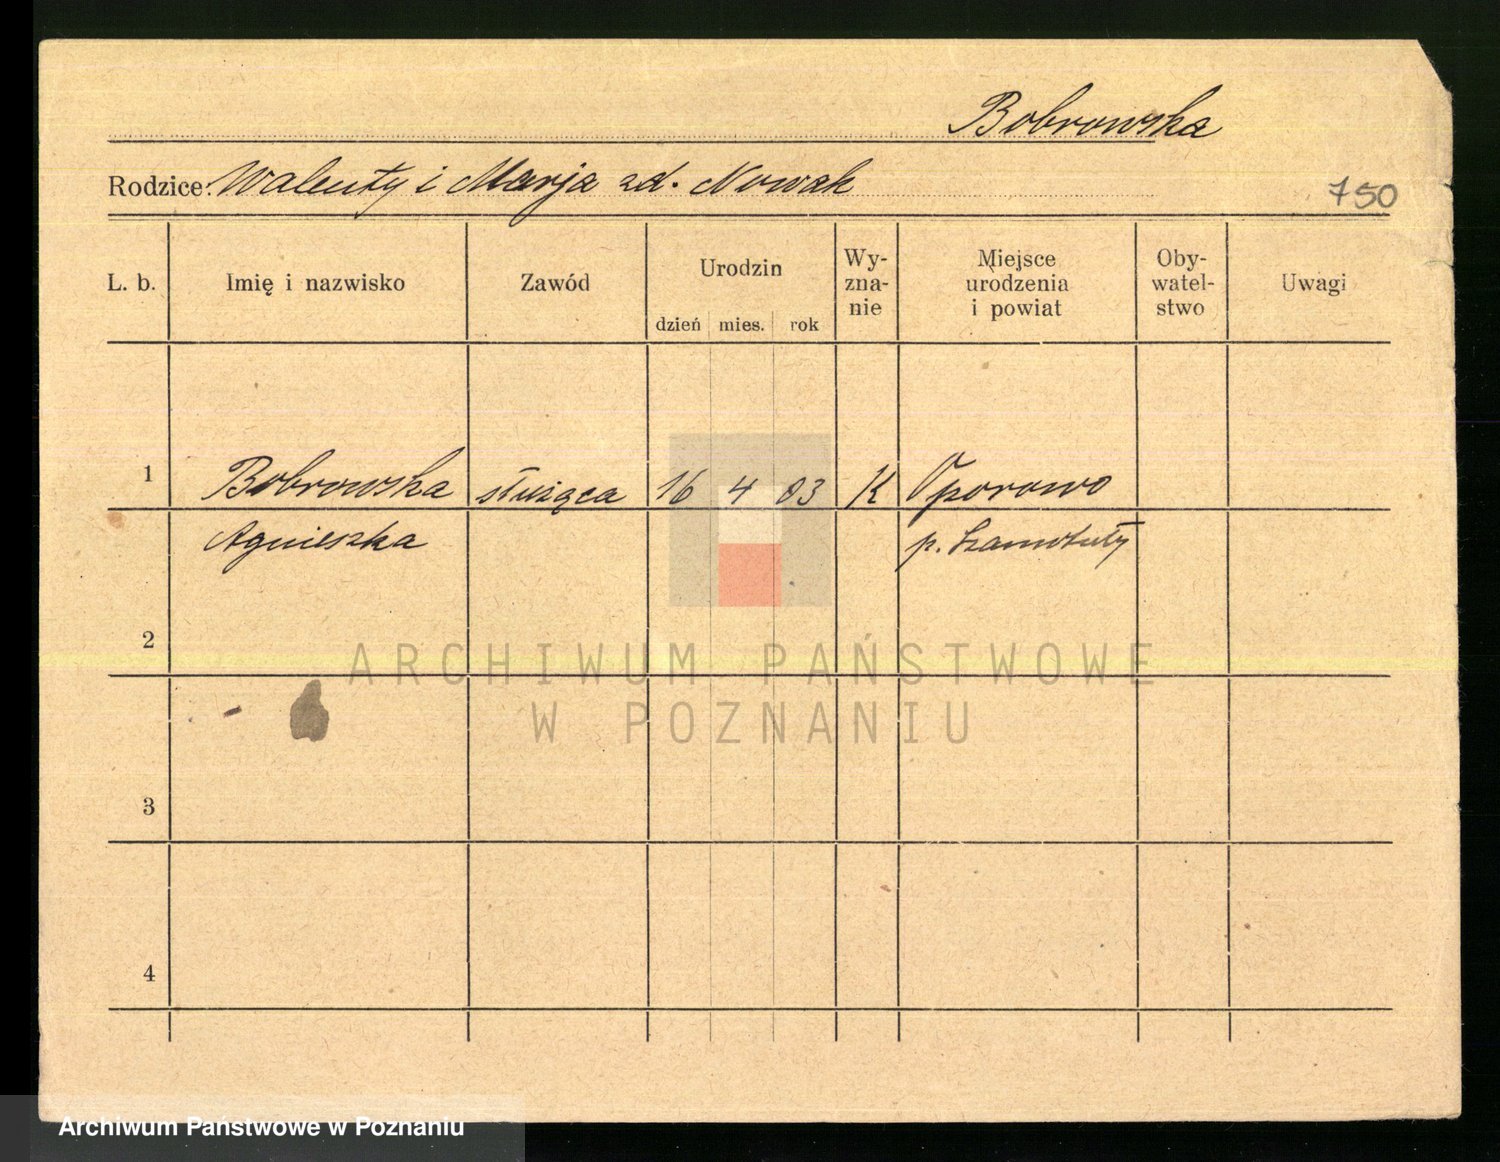 Bobrowska
Rodzice: Walenty i Marja zd. Nowak
750
L. b. Imię i nazwisko Zawód Urodzin Wy- Miejsce Oby- Uwagi
zna- urodzenia watel-
nie i powiat stwo
dzień mies. rok
1 Bobrowska służąca 16 4 03 K Oporowo
Agnieszka p. Szamotuły
2
ARCHIWUM PAŃSTWOWE
W POZNANIU
3
4
Archiwum Państwowe w Poznaniu